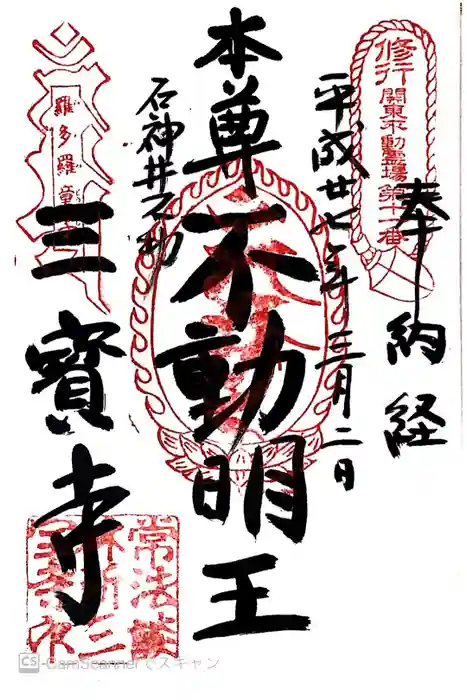 奉納経
修行
関東不動霊場第十一番
平成廿七年三月二日
本尊不動明王
石神井不動
羅多羅童子
三寳寺
CS CamScannerでスキャン